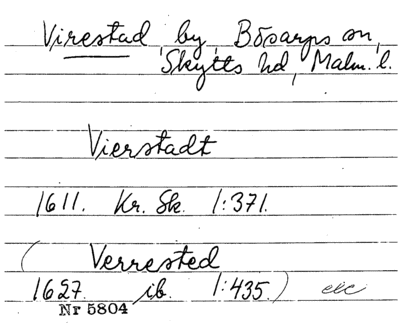 Virestad, by, Bösarps sn,
Skytts hd, Malm. l.
Vierstadt
1611. Kr. Sk. 1:371.
(Verrested
1627. ib. 1:435.) etc
Nr 5804